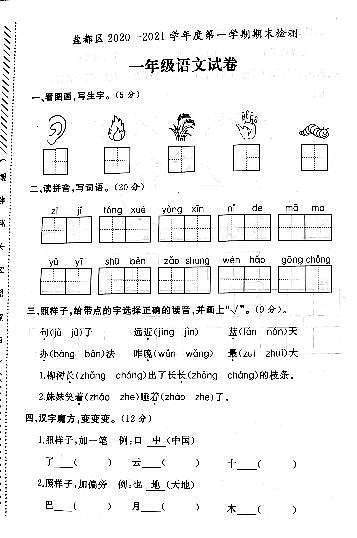 盐都区 2020-2021 学年度第一学期期末检测
一年级语文试卷
一、看图画,写生字。(5分)
二、读拼音,写词语。(20分)
zì jǐ tóng xué yòng xīn nǐ de mā ma
yǔ yī shū běn zǎo shang wèn hǎo gōng chǎng
三、照样子,给带点的字选择正确的读音,并画上“√”。(9分)。
句(jù jù)了 远近(jìng jìn) 蓝(lán nán)天
办(bàng bàn)法 昨晚(wǎn wǎng) 最(zuì zhuì)大
1.柳树长(zhǎng cháng)出了长长(zhǎng cháng)的枝条。
2.妹妹笑着(zháo zhe)睡着(zháo zhe)了。
四、汉字魔方,变变变。(12分)
1.照样子,加一笔 例:口 中 (中国)
了 ( ) 云 ( ) 十 ( )
2.照样子,加偏旁 例:也 地 (大地)
巴 ( ) 月 ( ) 木 ( )